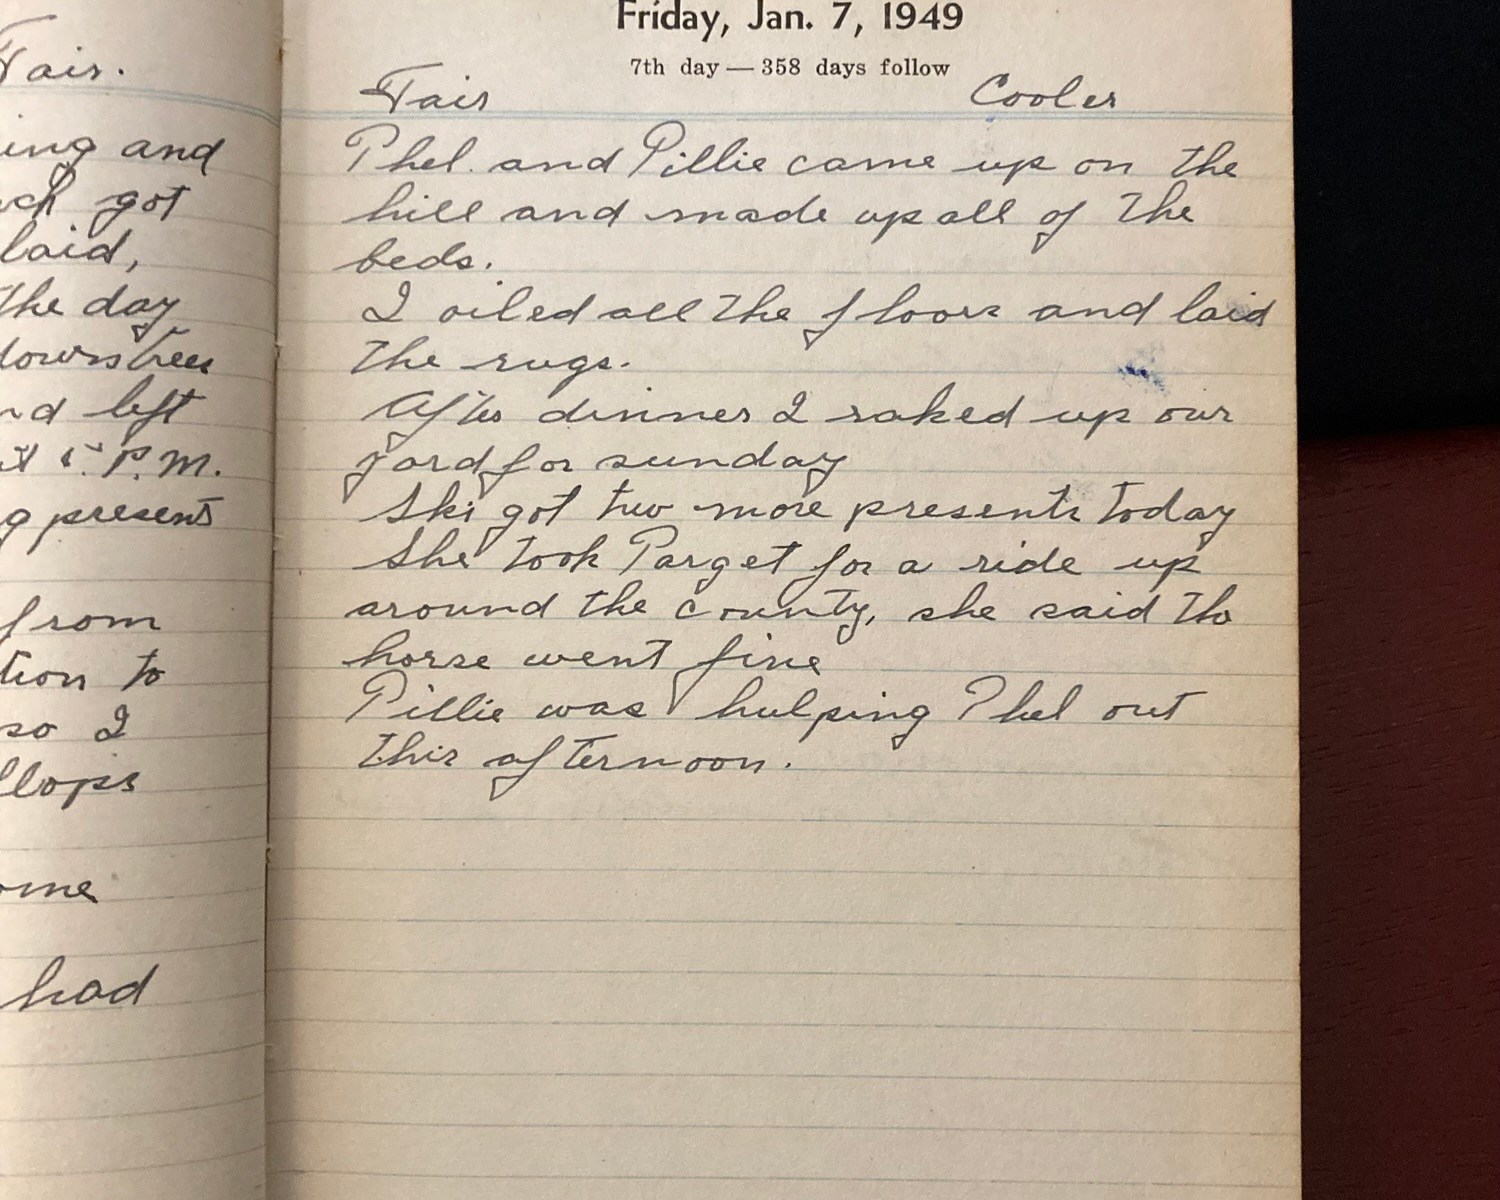 Fair.
ing and
got
laid,
the day
downstrees
nd left
at 5. P.M.
g present
from
tion to
so I
llops
ome
had
Friday, Jan. 7, 1949
7th day — 358 days follow
Fair Cooler
Phel. and Pillie came up on the
hill and made up all of the
beds.
I oiled all the floors and laid
the rugs.
After dinner I raked up our
yard for sunday
Ski got two more presents today
She took Parget for a ride up
around the county, she said the
horse went fine
Pillie was hulping Phel out
this afternoon.